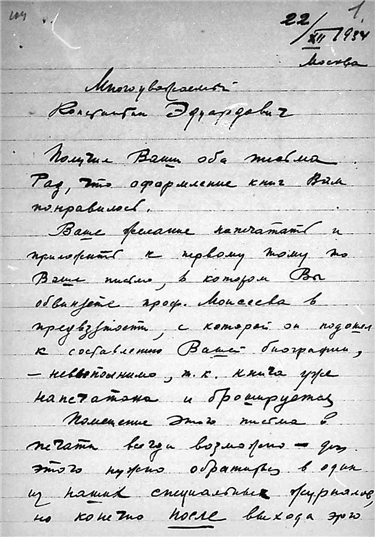 1.
22/XII 1934
Москва
Многоуважаемый
Константин Эдуардович
Получил Ваши оба письма
Рад, что оформление книг Вам
понравилось.
Ваше желание напечатать и
приложить к первому тому то
Ваше письмо, в котором Вы
обвиняете проф. Моисеева в
предвзятости, с которой он подошел
к составлению Вашей биографии,
— невыполнимо, т.к. книга уже
напечатана и брошируется
Помещение этого письма в
печати всегда возможно — для
этого нужно обратиться в один
из наших специальных журналов,
но конечно после выхода этого